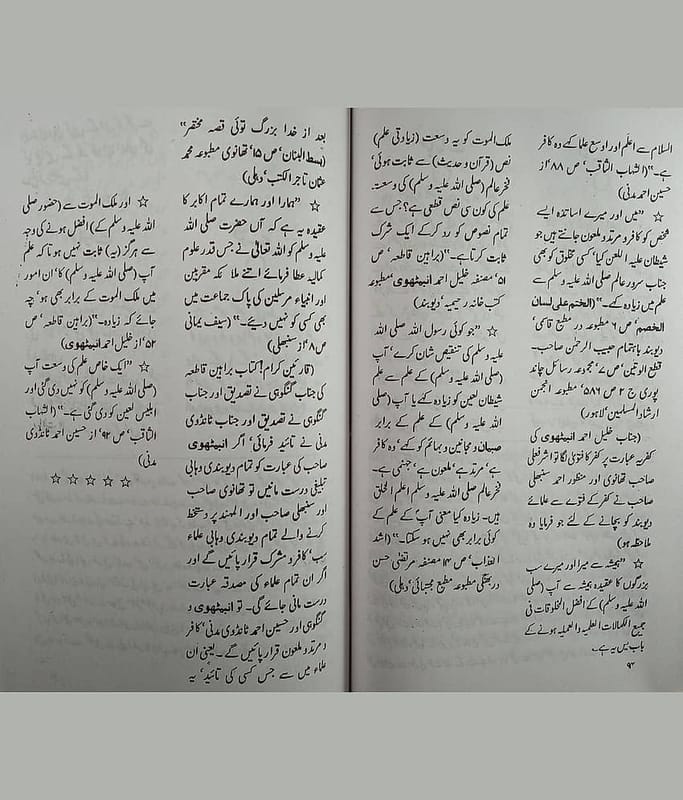 السلام سے اعلم اور اوسع علماً کہے وہ کافر
ہے۔" (الشہاب الثاقب' ص ۸۸' از
حسین احمد مدنی)
☆ "میں اور میرے اساتذہ ایسے
شخص کو کافر و مرتد و ملعون جانتے ہیں جو
شیطان علیہ اللعن کیا' کسی مخلوق کو بھی
جناب سرور عالم صلی اللہ علیہ وسلم سے
علم میں زیادہ کہے۔" (الختم علی لسان
الخصم' ص ۶ مطبوعہ در مطبع قاسمی'
دیوبند باہتمام حبیب الرحمٰن صاحب۔
قطع الوتین' ص ۷' مجموعہ رسائل چاند
پوری ج ۲ ص ۵۸۶' مطبوعہ انجمن
ارشاد المسلمین' لاہور)
(جناب خلیل احمد انبیٹھوی کی
کفریہ عبارت پر کفر کا فتویٰ لگا تو اشرفعلی
صاحب تھانوی اور منظور احمد سنبھلی
صاحب نے کفر کے فتوے سے علمائے
دیوبند کو بچانے کے لئے جو فرمایا وہ
ملاحظہ ہو)
☆ "ہمیشہ سے میرا اور میرے سب
بزرگوں کا عقیدہ ہمیشہ سے آپ (صلی
اللہ علیہ وسلم) کے افضل المخلوقات فی
جمیع الکمالات العلمیہ والعملیہ ہونے کے
باب میں یہ ہے۔
۹۳
ملک الموت کو یہ وسعت (زیادتی علم)
نص (قرآن و حدیث) سے ثابت ہوئی'
فخر عالم (صلی اللہ علیہ وسلم) کی وسعت
علم کی کون سی نص قطعی ہے؟ جس سے
تمام نصوص کو رد کر کے ایک شرک
ثابت کرتا ہے۔" (براہین قاطعہ' ص
۵۱' مصنفہ خلیل احمد انبیٹھوی' مطبوعہ
کتب خانہ رحیمیہ' دیوبند)
☆ "جو کوئی رسول اللہ صلی اللہ
علیہ وسلم کی تنقیص شان کرے' آپ
(صلی اللہ علیہ وسلم) کے علم سے علم
شیطان لعین کو زیادہ کہے یا آپ (صلی
اللہ علیہ وسلم) کے علم کے برابر
صبیان و مجانین و بہائم کو کہے' وہ کافر
ہے' مرتد ہے' ملعون ہے' جہنمی ہے۔
فخر عالم صلی اللہ علیہ وسلم اعلم الخلق
ہیں۔ زیادہ کیا معنی آپ کے علم کے
کوئی برابر بھی نہیں ہو سکتا۔" (اشد
العذاب' ص ۱۴ مصنفہ مرتضیٰ حسن
در بھنگی مطبوعہ مطبع مجتبائی' دہلی)
بعد از خدا بزرگ توئی قصہ مختصر"
(بسط البنان' ص ۱۵' تھانوی مطبوعہ محمد
عثمان تاجر الکتب' دہلی)
☆ "ہمارا اور ہمارے تمام اکابر کا
عقیدہ یہ ہے کہ آں حضرت صلی اللہ
علیہ وسلم کو اللہ تعالیٰ نے جس قدر علوم
کمالیہ عطا فرمائے اتنے ملائکہ مقربین
اور انبیاء مرسلین کی پاک جماعت میں
بھی کسی کو نہیں دیئے۔" (سیف یمانی
ص ۸' از سنبھلی)
(قارئین کرام! کتاب براہین قاطعہ
کی جناب گنگوہی نے تصدیق اور جناب
گنگوہی نے تصدیق اور جناب ٹانڈوی
مدنی نے تائید فرمائی' اگر انبیٹھوی
صاحب کی عبارت کو تمام دیوبندی وہابی
تبلیغی درست مانیں تو تھانوی صاحب
اور سنبھلی صاحب اور المہند پر دستخط
کرنے والے تمام دیوبندی وہابی علماء
سب' کافر و مشرک قرار پائیں گے اور
اگر ان تمام علماء کی مصدقہ عبارت
درست مانی جائے گی۔ تو انبیٹھوی و
گنگوہی اور حسین احمد ٹانڈوی مدنی' کافر
و مرتد و ملعون قرار پائیں گے۔ یعنی ان
علماء میں سے جس کسی کی تائید' یہ
☆ اور ملک الموت سے (حضور صلی
اللہ علیہ وسلم کے) افضل ہونے کی وجہ
سے ہرگز (یہ) ثابت نہیں ہوتا کہ علم
آپ (صلی اللہ علیہ وسلم) کا' ان امور
میں ملک الموت کے برابر بھی ہو' چہ
جائے کہ زیادہ۔" (براہین قاطعہ' ص
۵۲' از خلیل احمد انبیٹھوی)
☆ "ایک خاص علم کی وسعت آپ
(صلی اللہ علیہ وسلم) کو نہیں دی گئی اور
ابلیس لعین کو دی گئی ہے۔" (الشہاب
الثاقب' ص ۹۲' از حسین احمد ٹانڈوی
مدنی)
☆ ☆ ☆ ☆ ☆